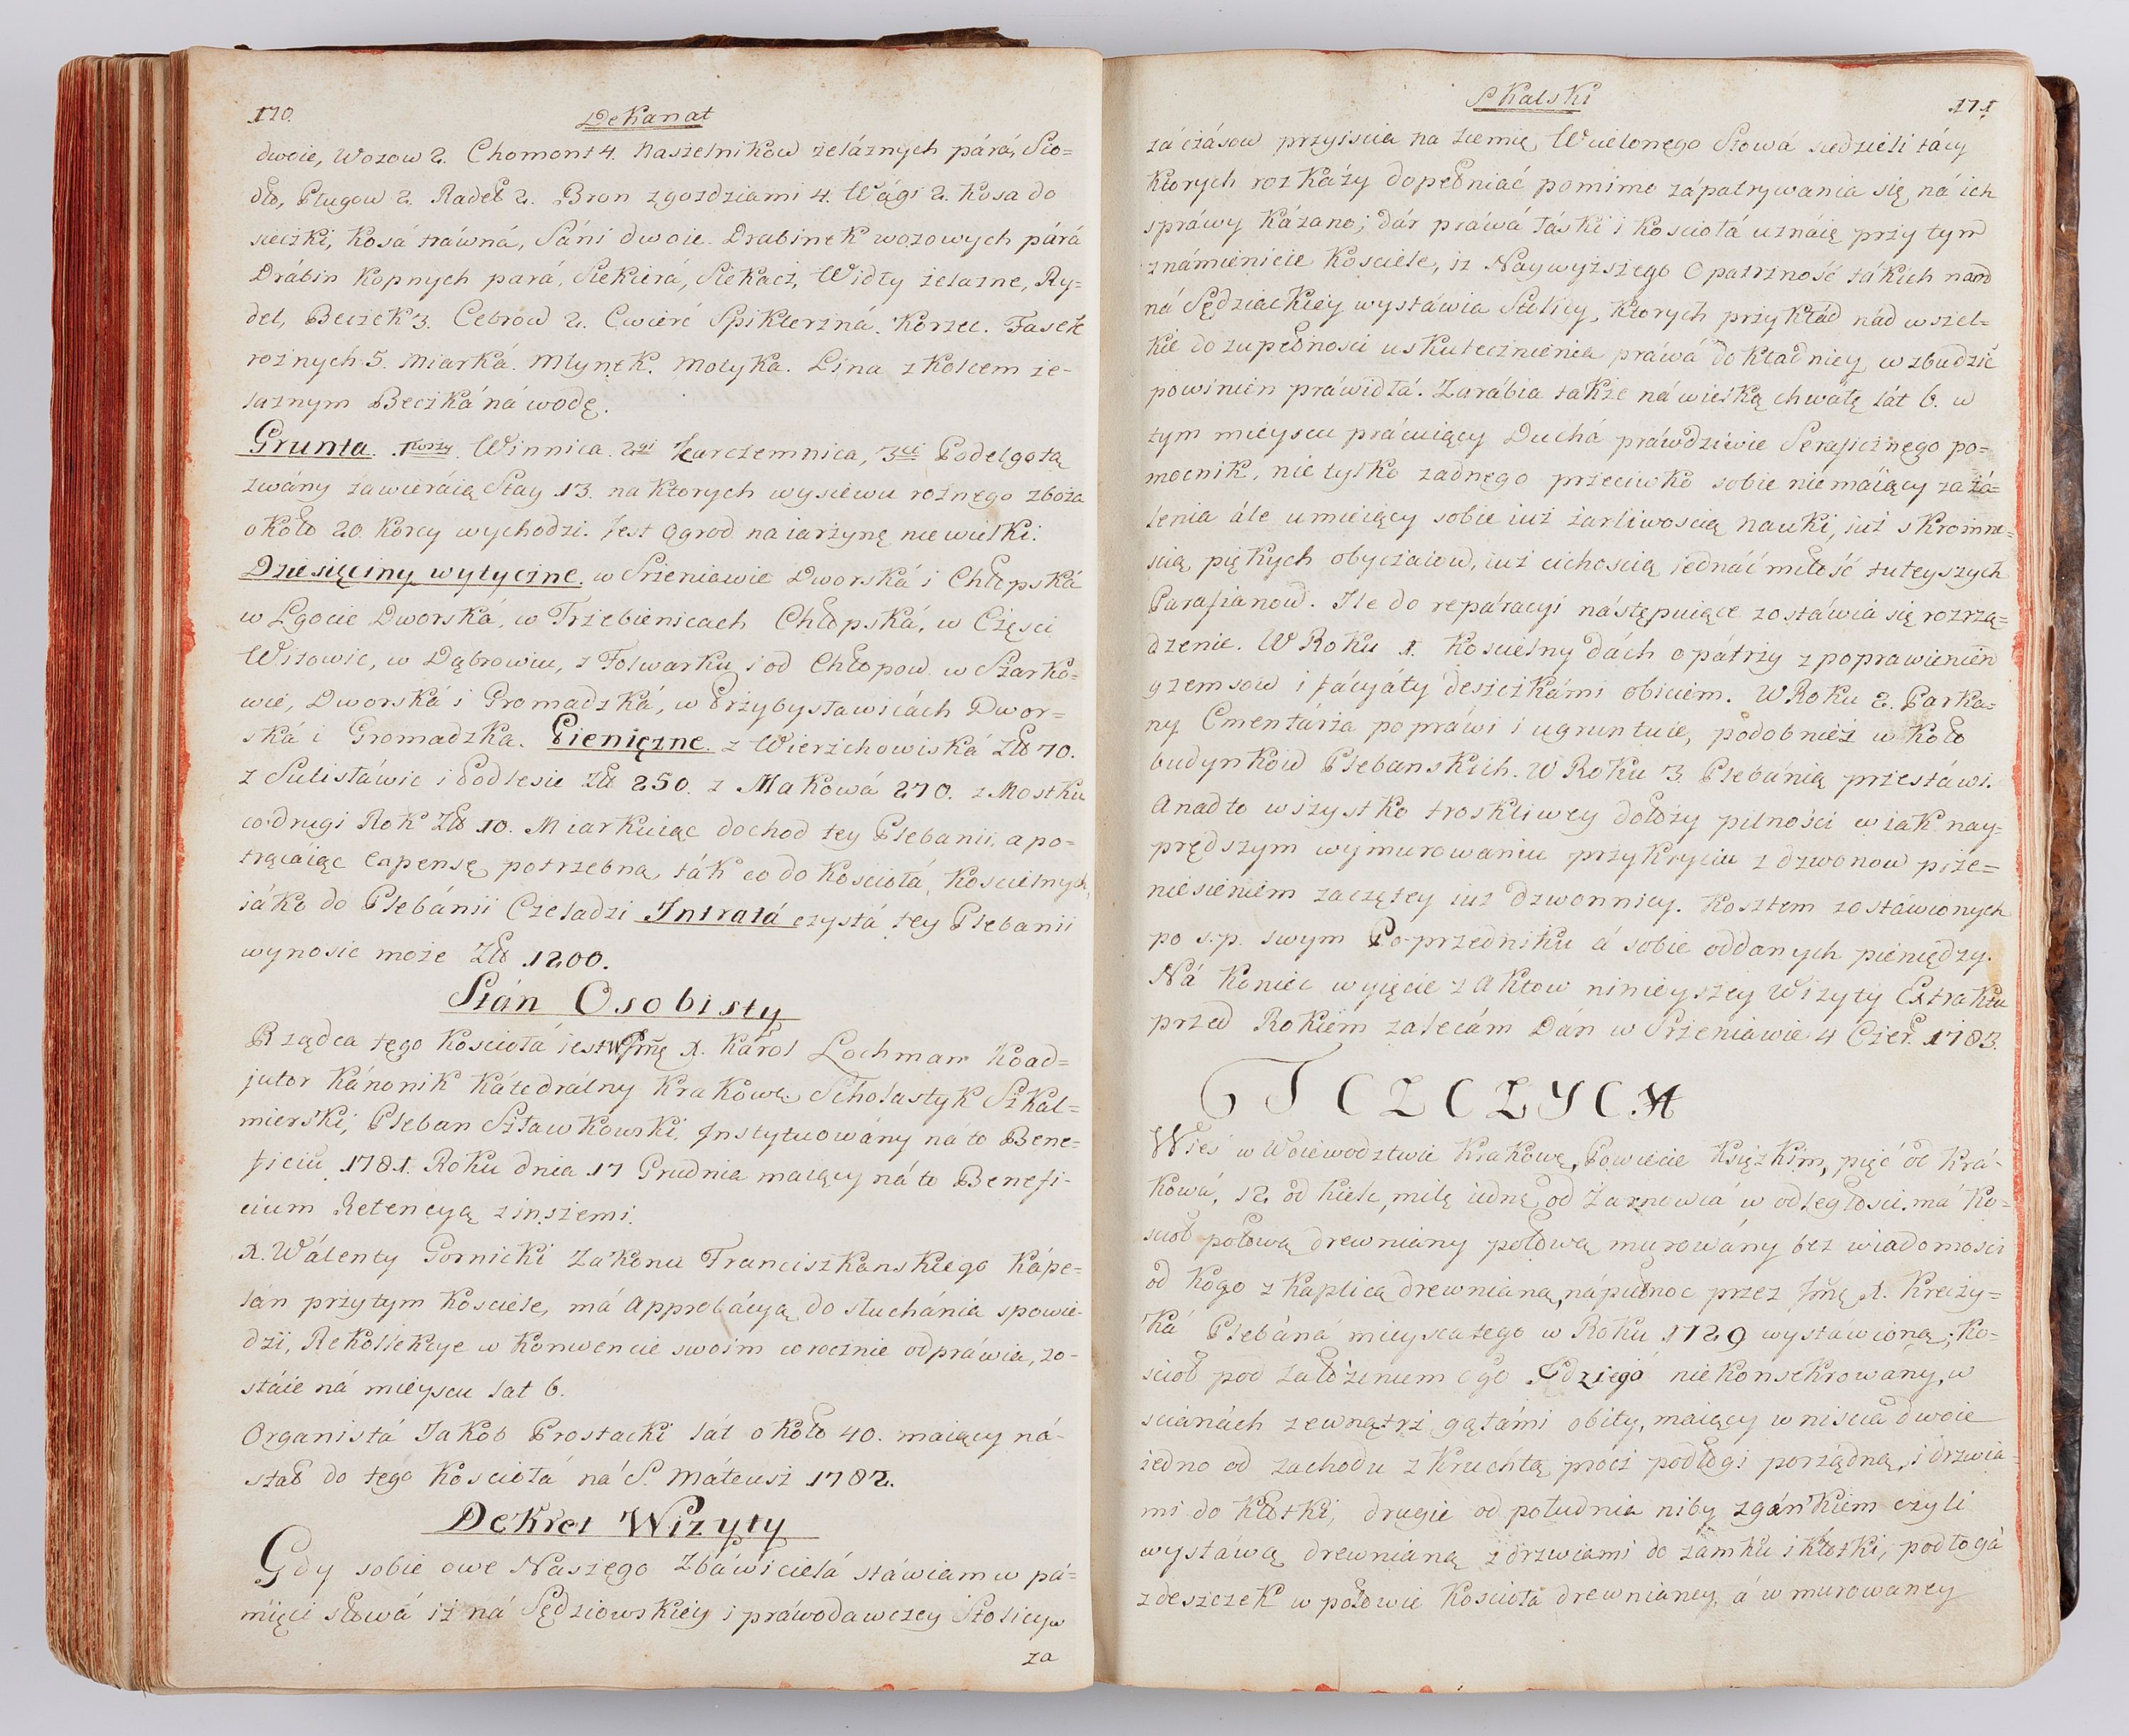 170.
Dekanat
dwoie, Wozow 2. Chomont 4. Naszelnikow żeláznych párá, Sio=
dło, Pługow 2. Radeł 2. Bron zgozdziami 4. Wági 2. Kosa do
sieczki, Kosá tráwná, Sáni dwoie. Drabinek wozowych párá
Drábin Kopnych pará, Siekierá, Siekacz, Widły żelazne, Ry=
del, Beczek 3. Cebrow 2. Cwierć Spiklerzná. Korzec. Fasek
rożnych 5. Miarká. Młynek. Motyka. Lina z kolcem że-
laznym Beczká ná wodę.
Grunta. 1wszy. Winnica. 2gi Karczemnica, 3ci Podelgotą
zwány zawieráią Stay 13. na ktorych wysiewu rożnego zboża
około 20. Korcy wychodzi. Jest Ogrod na iarżynę niewielki.
Dziesięciny wytyczne. w Srzeniawie Dworská i Chłopská
w Lgocie Dworská, w Trzebienicach Chłopská, w Części
Wisowic, w Dąbrowiu, z Folwarku i od Chłopow w Szarko=
wie, Dworská i Gromadzká, w Przybysławicách Dwor=
ská i Gromadzka. Pieniężne. z Wierzchowiská Zł 70.
z Sulisławic i Podlesie Zł 250. z Makowá 270. z Mostku
co drugi Rok Zł 10. Miarkuiąc dochod tey Plebanii, a po-
trącáiąc expensę potrzebną ták co do Kosciołá, Koscielnych,
iáko do Plebánii Czeladzi Intratá czystá tey Plebanii
wynosic może Zł 1200.
Stán Osobisty
Rządca tego Kosciołá iest WJmę X. Károl Lochman Koad=
jutor Kánonik Kátedrálny Krakowę. Scholastyk Szkal=
mierski, Pleban Szławkowski, Instytuowány ná to Bene=
ficiũ 1781. Roku dnia 17 Grudnia maiący ná to Benefi-
cium Retencyą z inszemi.
X. Wálenty Gornicki Zakonu Franciszkanskiego Kápe=
lán przytym Kosciele, má Approbácyą do słuchánia spowie-
dzi, Rekollekcye w Konwencie swoim corocznie odpráwia, zo-
stáie ná mieyscu lat 6.
Organistá Jakob Prostacki lát około 40. maiący ná-
stał do tego Kosciołá ná S. Máteusz 1782.
Dekret Wizyty
Gdy sobie owe Naszego Zbáwicielá stáwiam w pá=
mięci słowá iż ná Sędziowskiey i práwodawczey Stolicy
za
Skalski
171
zá czásow przyiscia na ziemię Wcielonego Słowá siedzieli tácy
Ktorych rozkázy dopełniać pomimo zápatrywania się ná ich
spráwy kázano; dár práwá łáski i Kosciołá uznáię przy tym
známienicie Kosciele, iz Naywyższego Opatrzność tákich naod
ná Sędziackiey wystáwia Stolicy, Ktorych przykłád nád wszel=
kie do zupełnosci uskutecznienia práwá dokładniey wzbudzić
powinien práwidłá. Zarábia także ná wielką chwałę lát 6. w
tym mieyscu prácuiący Duchá práwdziwie Seraficznego po=
mocnik, nie tylko zadnego przeciwko sobie nie máiący zażá=
lenia ále umieiący sobie iuż żarliwoscią nauki, iuż skromno=
scią pięknych obyczaiow, iuż cichoscią iednáć miłość tuteyszych
Parafianow. Ile do repáracyi nástępuiące zostáwia się rozrzą=
dzenie. W Roku 1. Koscielny dách opátrzy z poprawieniem
gzemsow i fácyáty deszczkámi obiciem. W Roku 2. Parka=
ny Cmentárza popráwi i ugruntuie, podobnież w koło
budynkow Plebanskich. W Roku 3 Plebánią przestáwi.
Anadto wszystko troskliwey dołoży pilności w iak nay=
prędszym wymurowaniu przykryciu z dzwonow prze=
niesieniem zaczętey iuż dzwonnicy. Kosztem zostawionych
po s. p. swym Po-przedniku á sobie oddanych pieniędzy.
Ná koniec wyięcie z Aktow ninieyszey Wizyty Extraktu
przed Rokiem zalecám Dán w Srżeniáwie 4 Czer. 1783.
TCZCZYCA
Wieś w Woiewodztwie Krakowę, Powiecie Księzkim, pięć od Krá-
kowá, 12 od Kielc, milę iednę od Żarnowcá w odległosci. má Ko=
scioł połową drewniany połową murowány bez wiadomości
od Kogo z Kaplicą drewnianą, ná pułnoc przez Jmę X. Kreczy=
ká Plebáná mieysca tego w Roku 1729 wystáwioną; Ko=
scioł pod założeniem Sgo Idziego niekonsekrowany, w
scianách zewnątrz gątámi obity, maiący wniscia dwoie
iedno od zachodu z Kruchtą procz podłogi porządną, i drzwia=
mi do Kłotki, drugie od południa niby z gánkiem czyli
wystáwą drewnianą z drzwiami do zamku i Kłotki, podłogá
z deszczek w połowie Koscioła drewnianey, á w murowaney